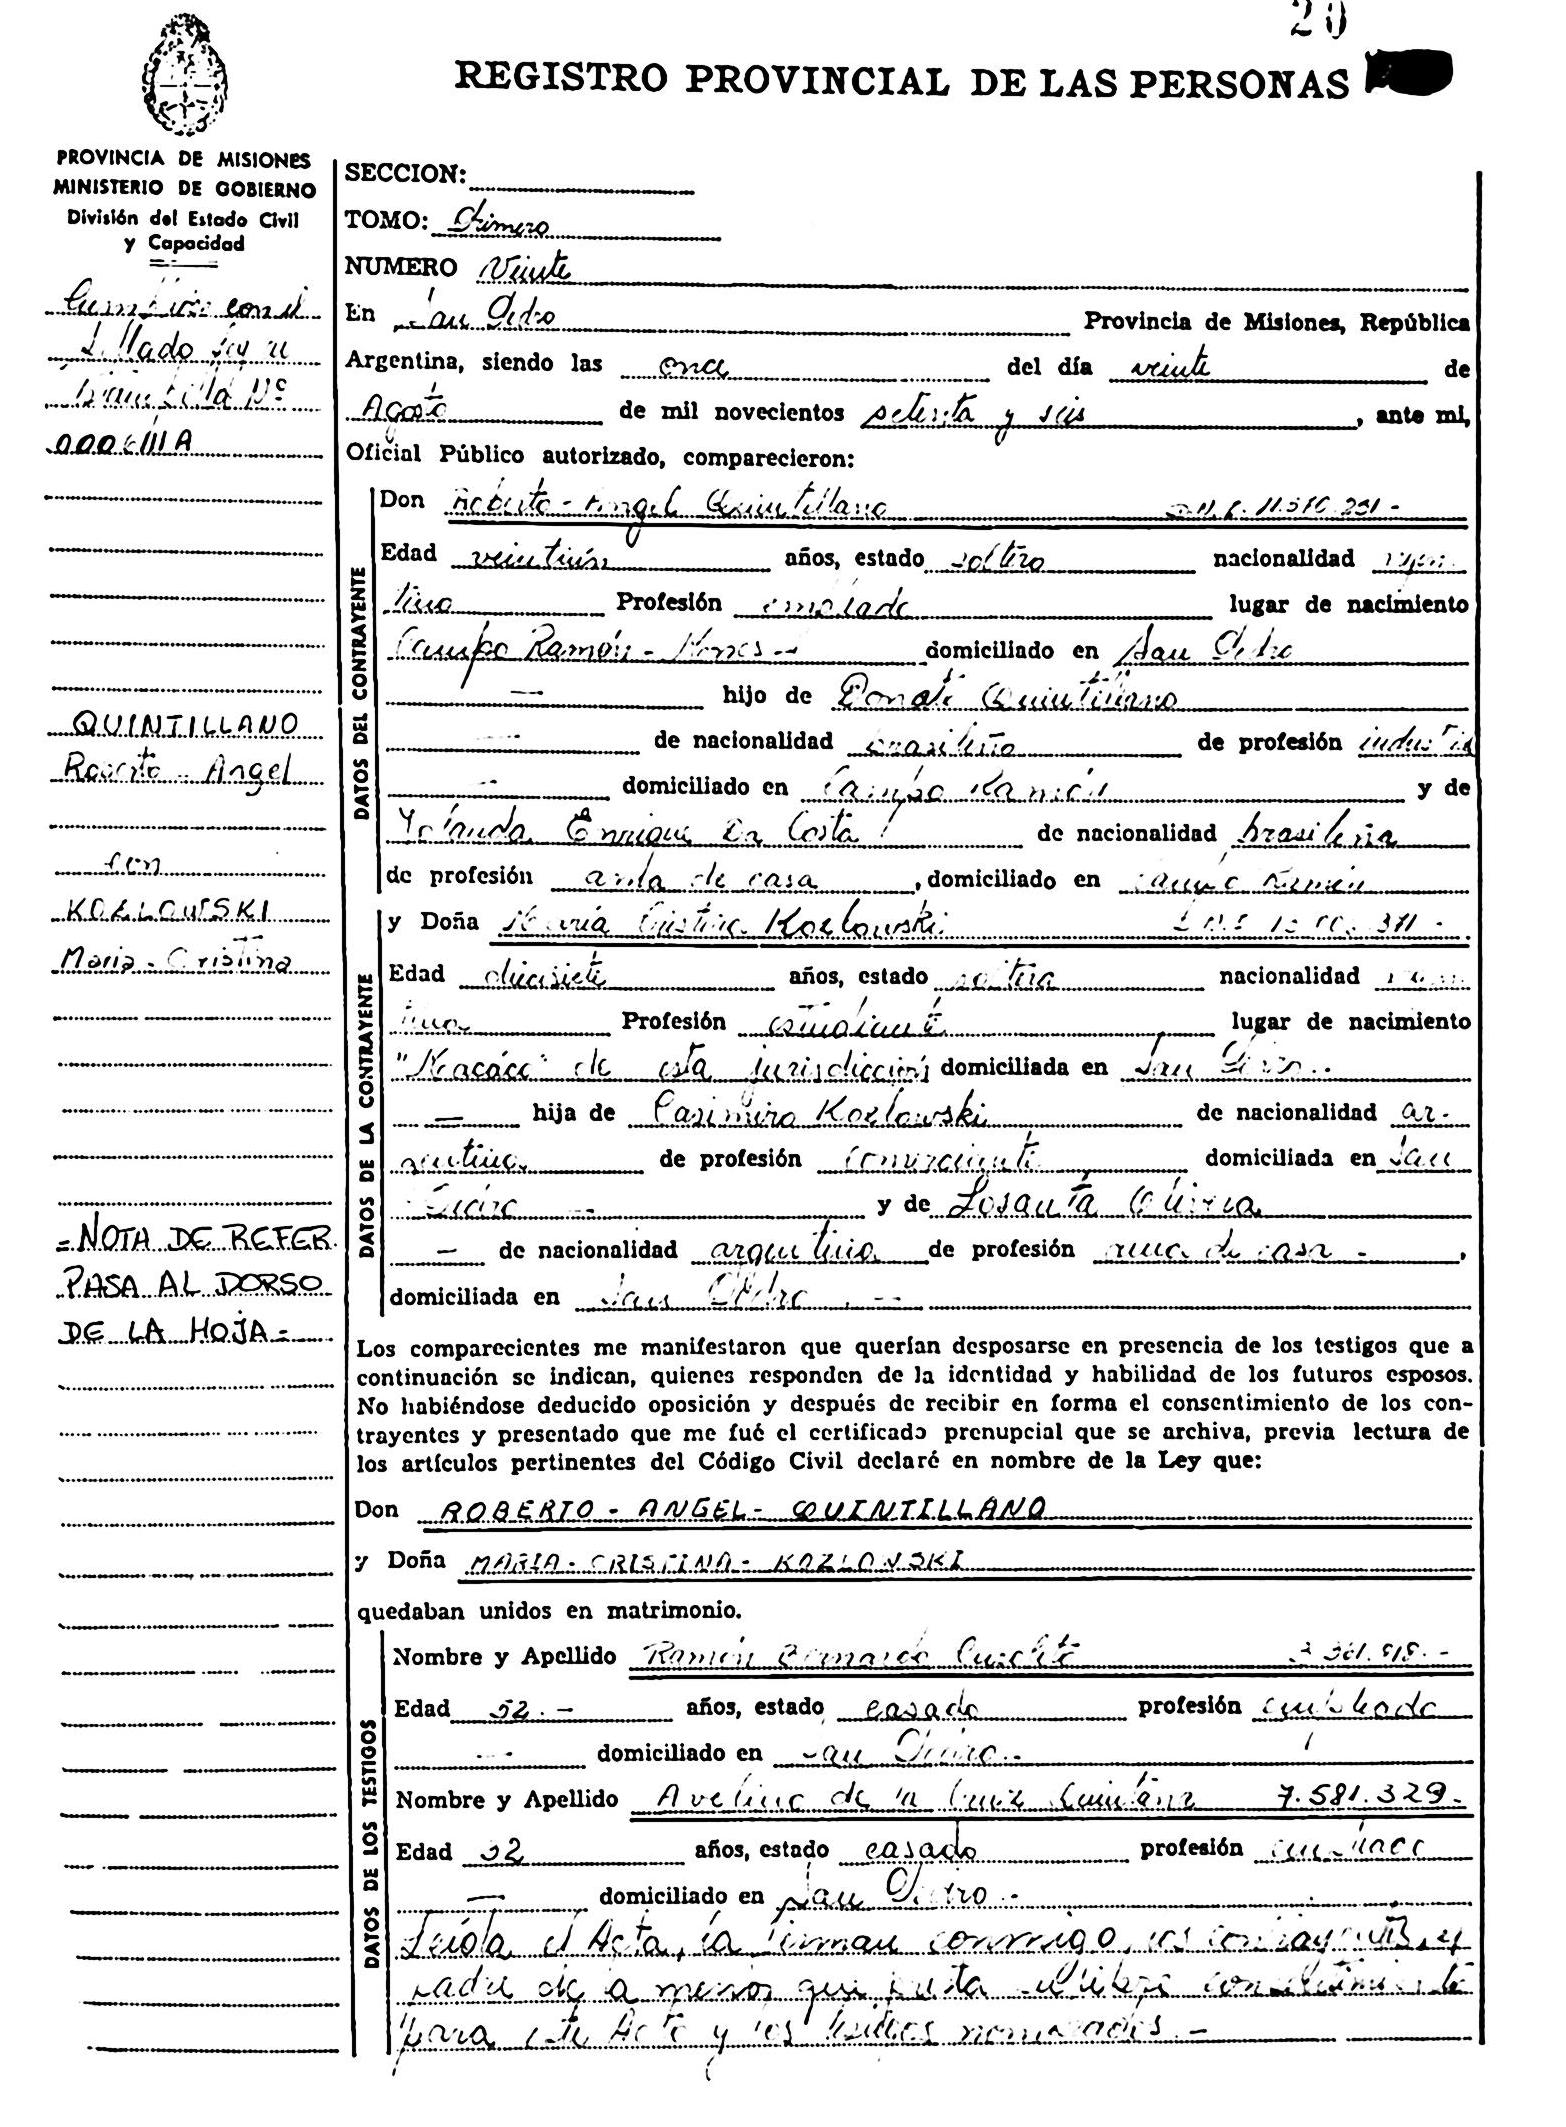 20
REGISTRO PROVINCIAL DE LAS PERSONAS
PROVINCIA DE MISIONES
MINISTERIO DE GOBIERNO
División del Estado Civil
y Capacidad
con el
Sellado Ley
Nº
QUINTILLANO
Roberto - Angel
con
KOZLOWSKI
Maria - Cristina
= NOTA DE REFER.
PASA AL DORSO
DE LA HOJA =
SECCION:
TOMO: Primero
NUMERO Veinte
En San Pedro Provincia de Misiones, República
Argentina, siendo las once del día veinte de
Agosto de mil novecientos setenta y seis, ante mi,
Oficial Público autorizado, comparecieron:
DATOS DEL CONTRAYENTE
Don Roberto - Angel Quintillano
Edad veintiún años, estado soltero nacionalidad argen
tino Profesión empleado lugar de nacimiento
Campo Ramón - Mnes - domiciliado en San Pedro
— hijo de Quintillano
— de nacionalidad brasileño de profesión industrial
— domiciliado en Campo Ramón y de
Yolanda Enrique Da Costa de nacionalidad brasileña
de profesión ama de casa, domiciliado en Campo Ramón
DATOS DE LA CONTRAYENTE
y Doña María Cristina Kozlowski
Edad diecisiete años, estado soltera nacionalidad argen
tina Profesión estudiante lugar de nacimiento
de esta jurisdicción domiciliada en San Pedro -
— hija de Casimiro Kozlowski de nacionalidad ar-
gentina de profesión comerciante domiciliada en San
Pedro — y de Olivera
— de nacionalidad argentina de profesión ama de casa - ,
domiciliada en San Pedro . —
Los comparecientes me manifestaron que querían desposarse en presencia de los testigos que a
continuación se indican, quienes responden de la identidad y habilidad de los futuros esposos.
No habiéndose deducido oposición y después de recibir en forma el consentimiento de los con-
trayentes y presentado que me fué el certificado prenupcial que se archiva, previa lectura de
los artículos pertinentes del Código Civil declaré en nombre de la Ley que:
Don ROBERTO - ANGEL - QUINTILLANO
y Doña MARIA - CRISTINA - KOZLOWSKI
quedaban unidos en matrimonio.
DATOS DE LOS TESTIGOS
Nombre y Apellido Ramón Bernardo
Edad 52 . — años, estado casado profesión empleado
— domiciliado en San Pedro -
Nombre y Apellido Avelino de la Cruz Quintana 7.581.329 -
Edad 32 años, estado casado profesión empleado
— domiciliado en San Pedro -
Leída el Acta, la firman conmigo, los contrayentes, el
padre de la menor que presta su libre consentimiento
para este Acto y los testigos nombrados . —